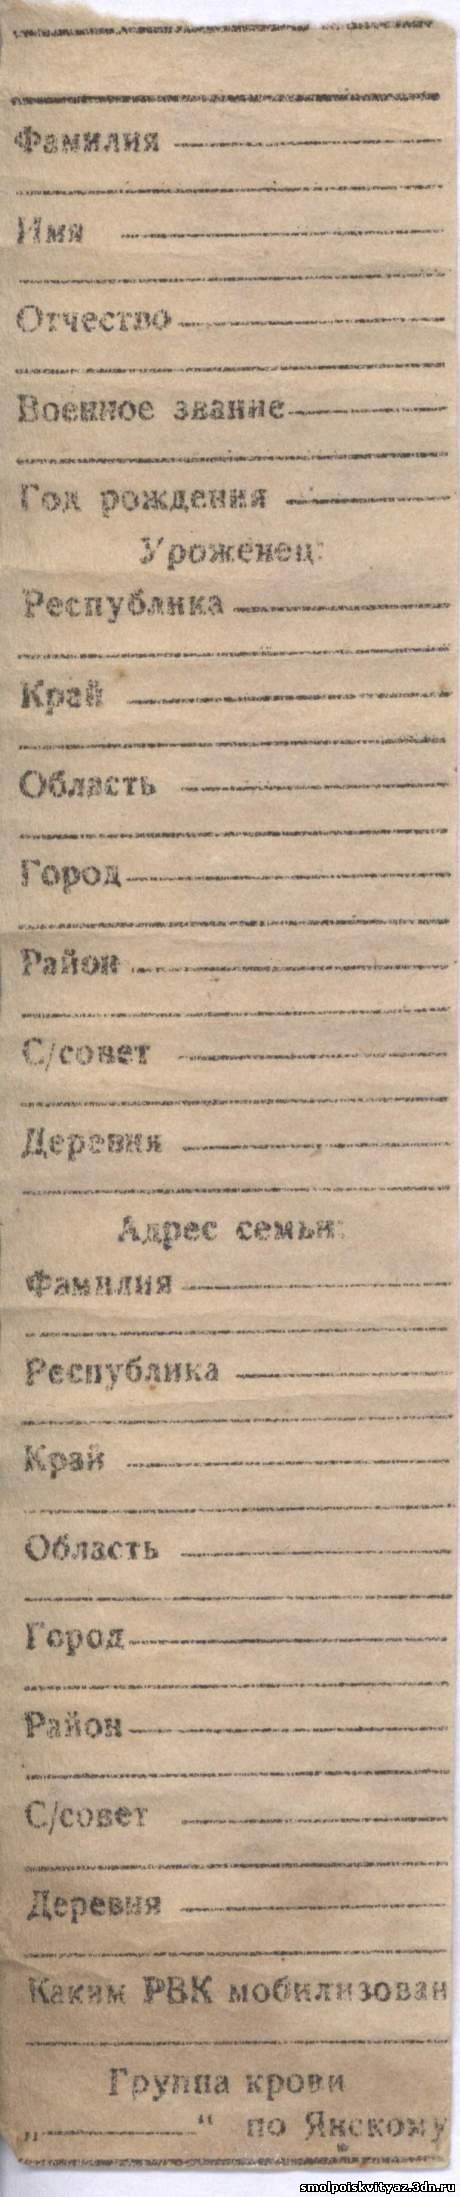 Фамилия
Имя
Отчество
Военное звание
Год рождения
Уроженец:
Республика
Край
Область
Город
Район
С/совет
Деревня
Адрес семьи:
Фамилия
Республика
Край
Область
Город
Район
С/совет
Деревня
Каким РВК мобилизован
Группа крови
„ “ по Янскому
smolpoiskvityaz.3dn.ru